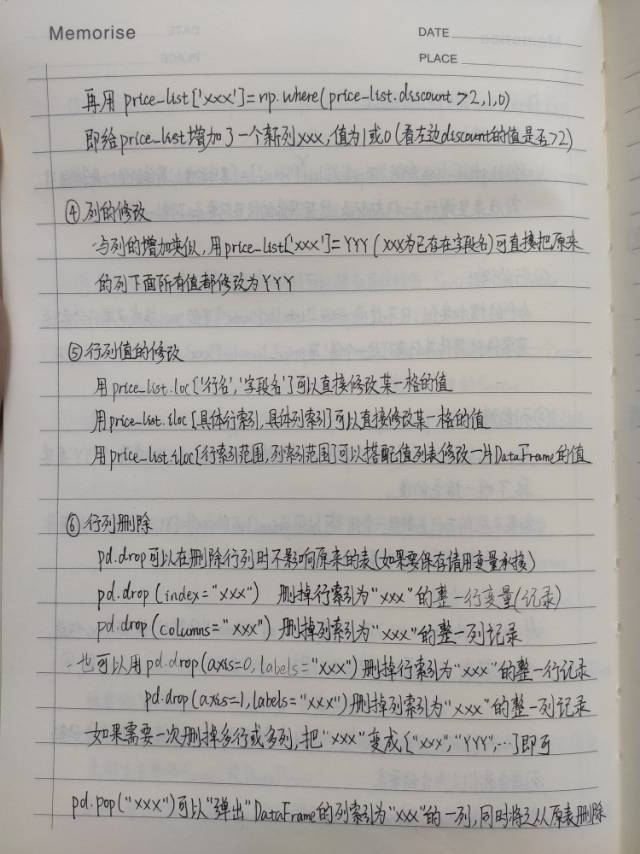 Memorise
DATE
PLACE
再用 price_list['xxx']=np.where(price_list.disscount>2,1,0)
即给price_list增加了一个新列xxx,值为1或0(看左边discount的值是否>2)
④列的修改
与列的增加类似,用price_list['xxx']=YYY(xxx为已存在字段名)可直接把原来
的列下面所有值都修改为YYY
⑤行列值的修改
用price_list.loc['行名','字段名']可以直接修改某一格的值
用price_list.iloc[具体行索引,具体列索引]可以直接修改某一格的值
用price_list.iloc[行索引范围,列索引范围]可以搭配值列表修改一片DataFrame的值
⑥行列删除
pd.drop可以在删除行列时不影响原来的表(如果要保存请用变量承接)
pd.drop(index="xxx") 删掉行索引为"xxx"的整一行变量(记录)
pd.drop(columns="xxx") 删掉列索引为"xxx"的整一列记录
也可以用pd.drop(axis=0,labels="xxx")删掉行索引为"xxx"的整一行记录
pd.drop(axis=1,labels="xxx")删掉列索引为"xxx"的整一列记录
如果需要一次删掉多行或多列,把"xxx"变成["xxx","YYY",…]即可
pd.pop("xxx")可以"弹出"DataFrame的列索引为"xxx"的一列,同时将之从原表删除